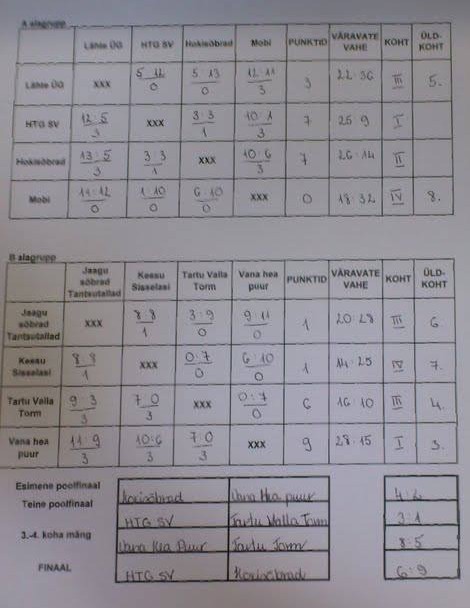 A alagrupp
Lähte ÜG HTG SV Hokisõbrad Mobi PUNKTID VÄRAVATE VAHE KOHT ÜLD-KOHT
Lähte ÜG XXX 5:12 0 5:13 0 12:11 3 3 22:36 III 5.
HTG SV 12:5 3 XXX 3:3 1 10:1 3 7 25:9 I
Hokisõbrad 13:5 3 3:3 1 XXX 10:6 3 7 26:14 II
Mobi 11:12 0 1:10 0 6:10 0 XXX 0 18:32 IV 8.
B alagrupp
Jaagu sõbrad Tantsutallad Keesu Sisselasi Tartu Valla Torm Vana hea puur PUNKTID VÄRAVATE VAHE KOHT ÜLD-KOHT
Jaagu sõbrad Tantsutallad XXX 8:8 1 3:9 0 9:11 0 1 20:28 III 6
Keesu Sisselasi 8:8 1 XXX 0:7 0 6:10 0 1 14:25 IV 7.
Tartu Valla Torm 9:3 3 7:0 3 XXX 0:7 0 6 16:10 III 4.
Vana hea puur 11:9 3 10:6 3 7:0 3 XXX 9 28:15 I 3.
Esimene poolfinaal Vana Hea puur
Teine poolfinaal HTG SV Tartu Valla Torm 3:1
3.-4. koha mäng Vana Hea Puur Tartu Torm 8:5
FINAAL HTG SV 6:9